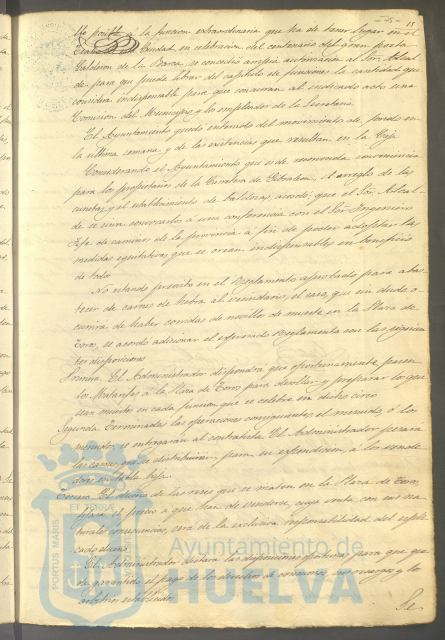 15
No posible a la funcion extraordinaria que ha de tener lugar en el
Teatro de esta Ciudad, en celebracion del centenario del gran poeta
Calderon de la Barca, se concedió amplia autorizacion al Sor Alcal
de para que pueda librar del capitulo de funciones la cantidad que
considere indispensable para que concurran al indicado acto una
Comision del Municipio y los empleados de la Secretaria.
El Ayuntamiento quedó enterado del movimiento de fondos en
la última semana y de las existencias que resultan en la Caja
Considerando el Ayuntamiento que es de reconocida conveniencia
para los propietarios de la Carretera de Gibraleon, el arreglo de las
cunetas, y el establecimiento de baldosas, acordó; que el Sor Alcal
de se sirva convocarlos a una conferencia con el Sor Ingeniero
Jefe de caminos de la provincia á fin de poder adoptar las
medidas equitativas que se crean indispensables en beneficio
de todo.
No estando previsto en el Reglamento aprobado para abas
tecer de carnes de hebra al vecindario, el caso, que sin duda o
currirá de haber corridas de novillos de muerte en la Plaza de
Toros, se acordó adicionar el espresado Reglamento con las siguien
tes disposiciones
Primera. El Administrador dispondrá que oportunamente pasen
los Matarifes á la Plaza de Toros, para desollar y preparar lo que
sean muertos en cada funcion que se celebre en dicho circo
Segunda. Terminadas las operaciones consiguientes, el menudo ó los
menudos, se entregaran al contratista. El Administrador pesará
las carnes que se distribuiran, para su expendicion, á los vende
dores en tabla baja.
Tercera. El dueño de las reses que se maten en la Plaza de Toros,
fijará el precio á que han de venderse, cuya venta con sus na
turales consecuencias, será de la exclusiva responsabilidad del espli
cado dueño
El Administrador dictará las disposiciones oportunas para que que
de garantido el pago de los derechos de consumos, sus recargos y los
arbitrios establecidos.
Se
PORTUS MARIS
ET TERRÆ
Ayuntamiento de
HUELVA